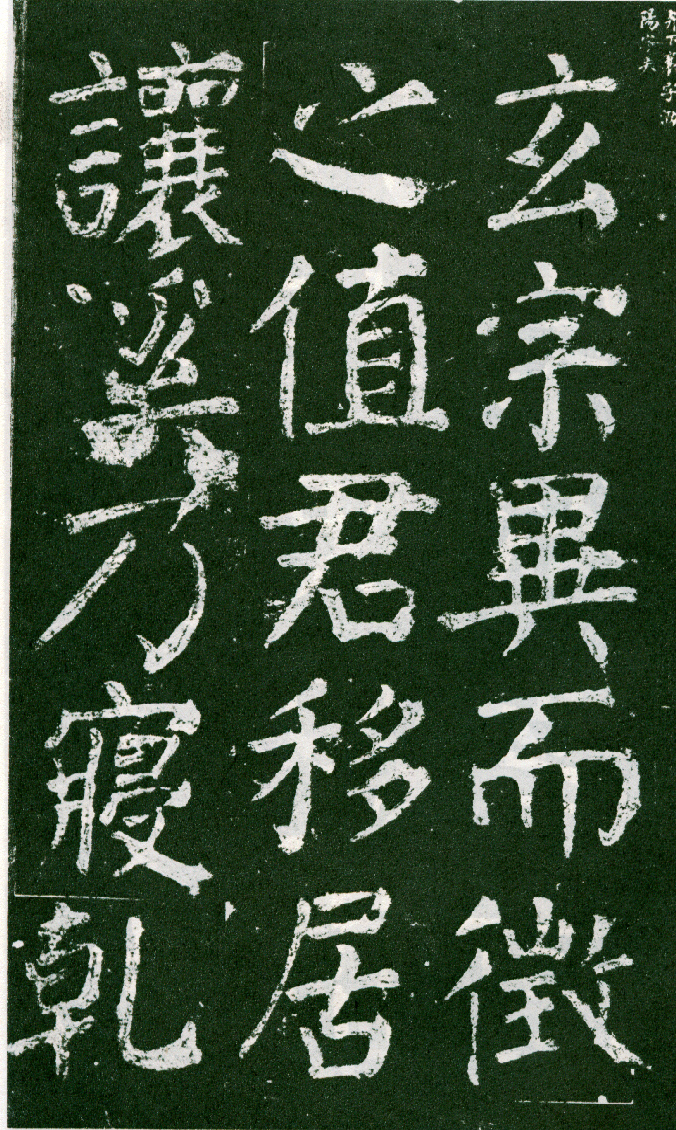 玄宗異而徵
之值君移居
讓溪乃寢乾